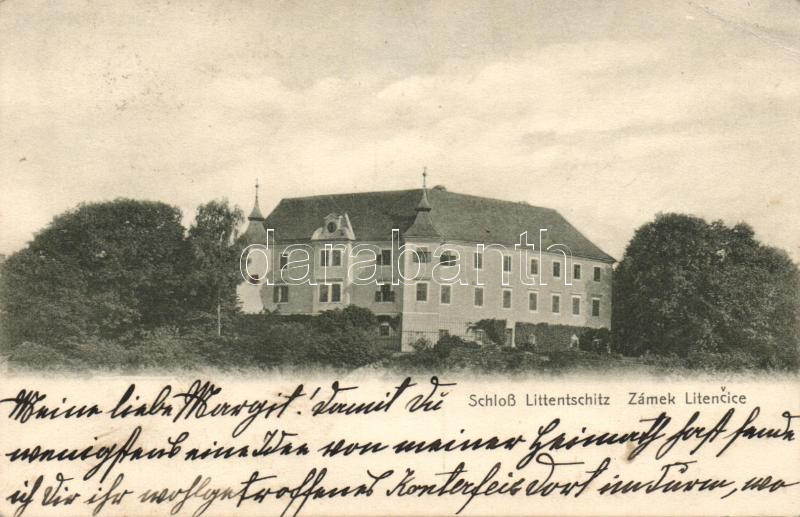 darabanth
Schloß Littentschitz Zámek Litenčice
Meine liebe Margit! Damit du
wenigstens eine Idee von meiner Heimath hast sende
ich dir ihr wohlgetroffenes Konterfei dort im Turm, wo